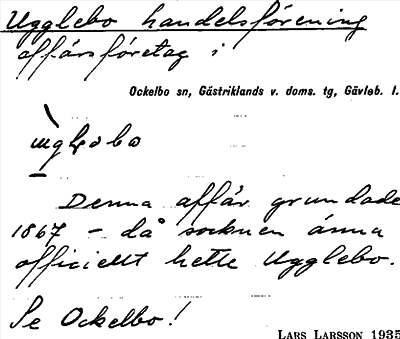 Ugglebo handelsförening
affärsföretag i
Ockelbo sn, Gästriklands v. doms. tg, Gävleb. l.
Denna affär grundade
1867 – då socknen ännu
officiellt hette Ugglebo.
Se Ockelbo!
LARS LARSSON 1935